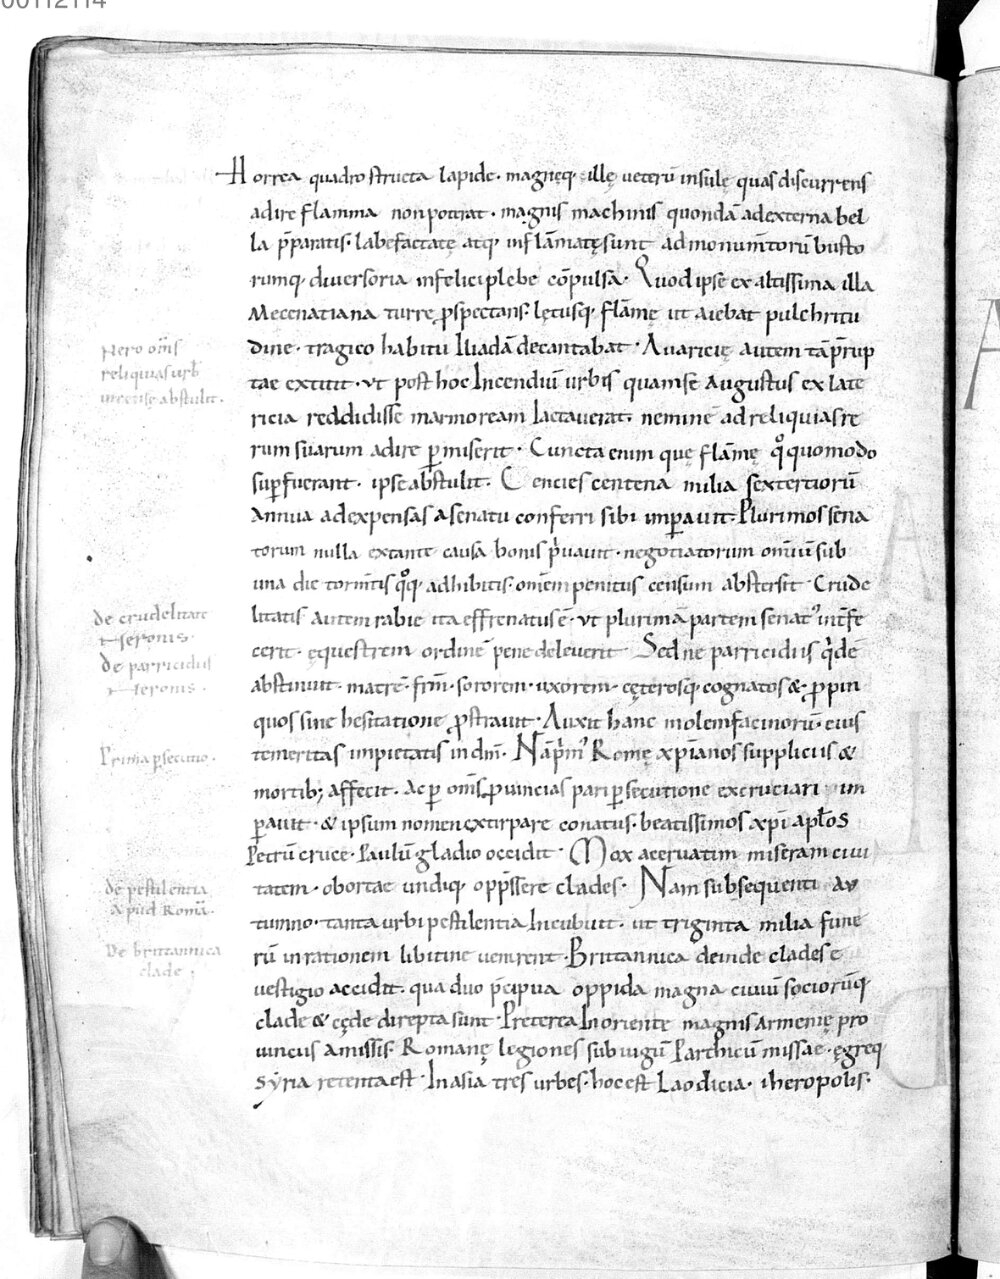 00112114
Horrea quadro structa lapide· magnęq· illę ueterū insulę quas discurrens
adire flamma non poterat· magnis machinis quondā ad externa bel
la p̄paratis· labefactatę atq· inflāmatę sunt ad monumtorū busto
rumq· diuersoria infelici plebe cōpulsa· Quod ipse ex altissima illa
Mecenatiana turre ꝓspectans· lętusq· flāmę ut aiebat pulchritu
dine· tragico habitu Iliadā decantabat· Auaricię autem tā p̄rup
tae extitit· vt post hoc Incendiū urbis quam se Augustus ex late
ricia reddidisse marmoream Iactauerat· neminē ad reliquias re
rum suarum adire ꝑmiserit· Cuncta enim quę flāmę qͦquomodo
suꝑfuerant· ipse abstulit· Centies centena milia sextertiorū
Annua ad expensas a senatu conferri sibi imꝑauit· Plurimos sena
torum nulla extante causa bonis pͥuauit· negotiatorum omīū sub
una die tormtis qͦq· adhibitis· omēm penitus censum abstersit· Crude
litatis autem rabie ita effrenatus ē· vt plurimā partem senatꝰ intfe
cerit· ęquestrem ordinē pene deleuerit· Sed ne parricidiis qͥdē
abstinuit· matrē· frm̄· sororem· uxorem· cęterosq· cognatos & ꝓpin
quos sine hesitatione ꝓstrauit· Auxit hanc molem facinorū· eius
temeritas impietatis in dm̄· Nā pͥmꝰ Romę xp̄ianos suppliciis &
mortib; affecit· Ac ꝑ om̄s ꝓuincias pari ꝑsecutione excruciari im
ꝑauit· & ipsum nomen extirpare conatus· beatissimos xp̄i ap̄los
Petrū cruce· Paulū gladio occidit· Mox aceruatim miseram ciui
tatem· obortae undiq· opp̄ssere clades· Nam subsequenti au
tumno· tanta urbi pestilentia Incubuit· ut triginta milia fune
rū in rationem libitine uenirent· Brittannica deinde clades e
uestigio accidit· qua duo p̄cipua oppida magna ciuiū sociorūq·
clade & cęde direpta sunt· Pręterea In oriente magnis Armenię pro
uinciis amissis· Romanę legiones sub iugū Parthicū missae· ęgreq·
Syria retenta est· In asia tres urbes· hoc est Laodicia· iheropolis·
Nero om̄s
reliquias urb
incense abstulit·
de crudelitate
Neronis·
de parricidiis
Neronis·
Prima ꝑsecutio·
de pestilentia
apud Romā·
De brittannica
clade